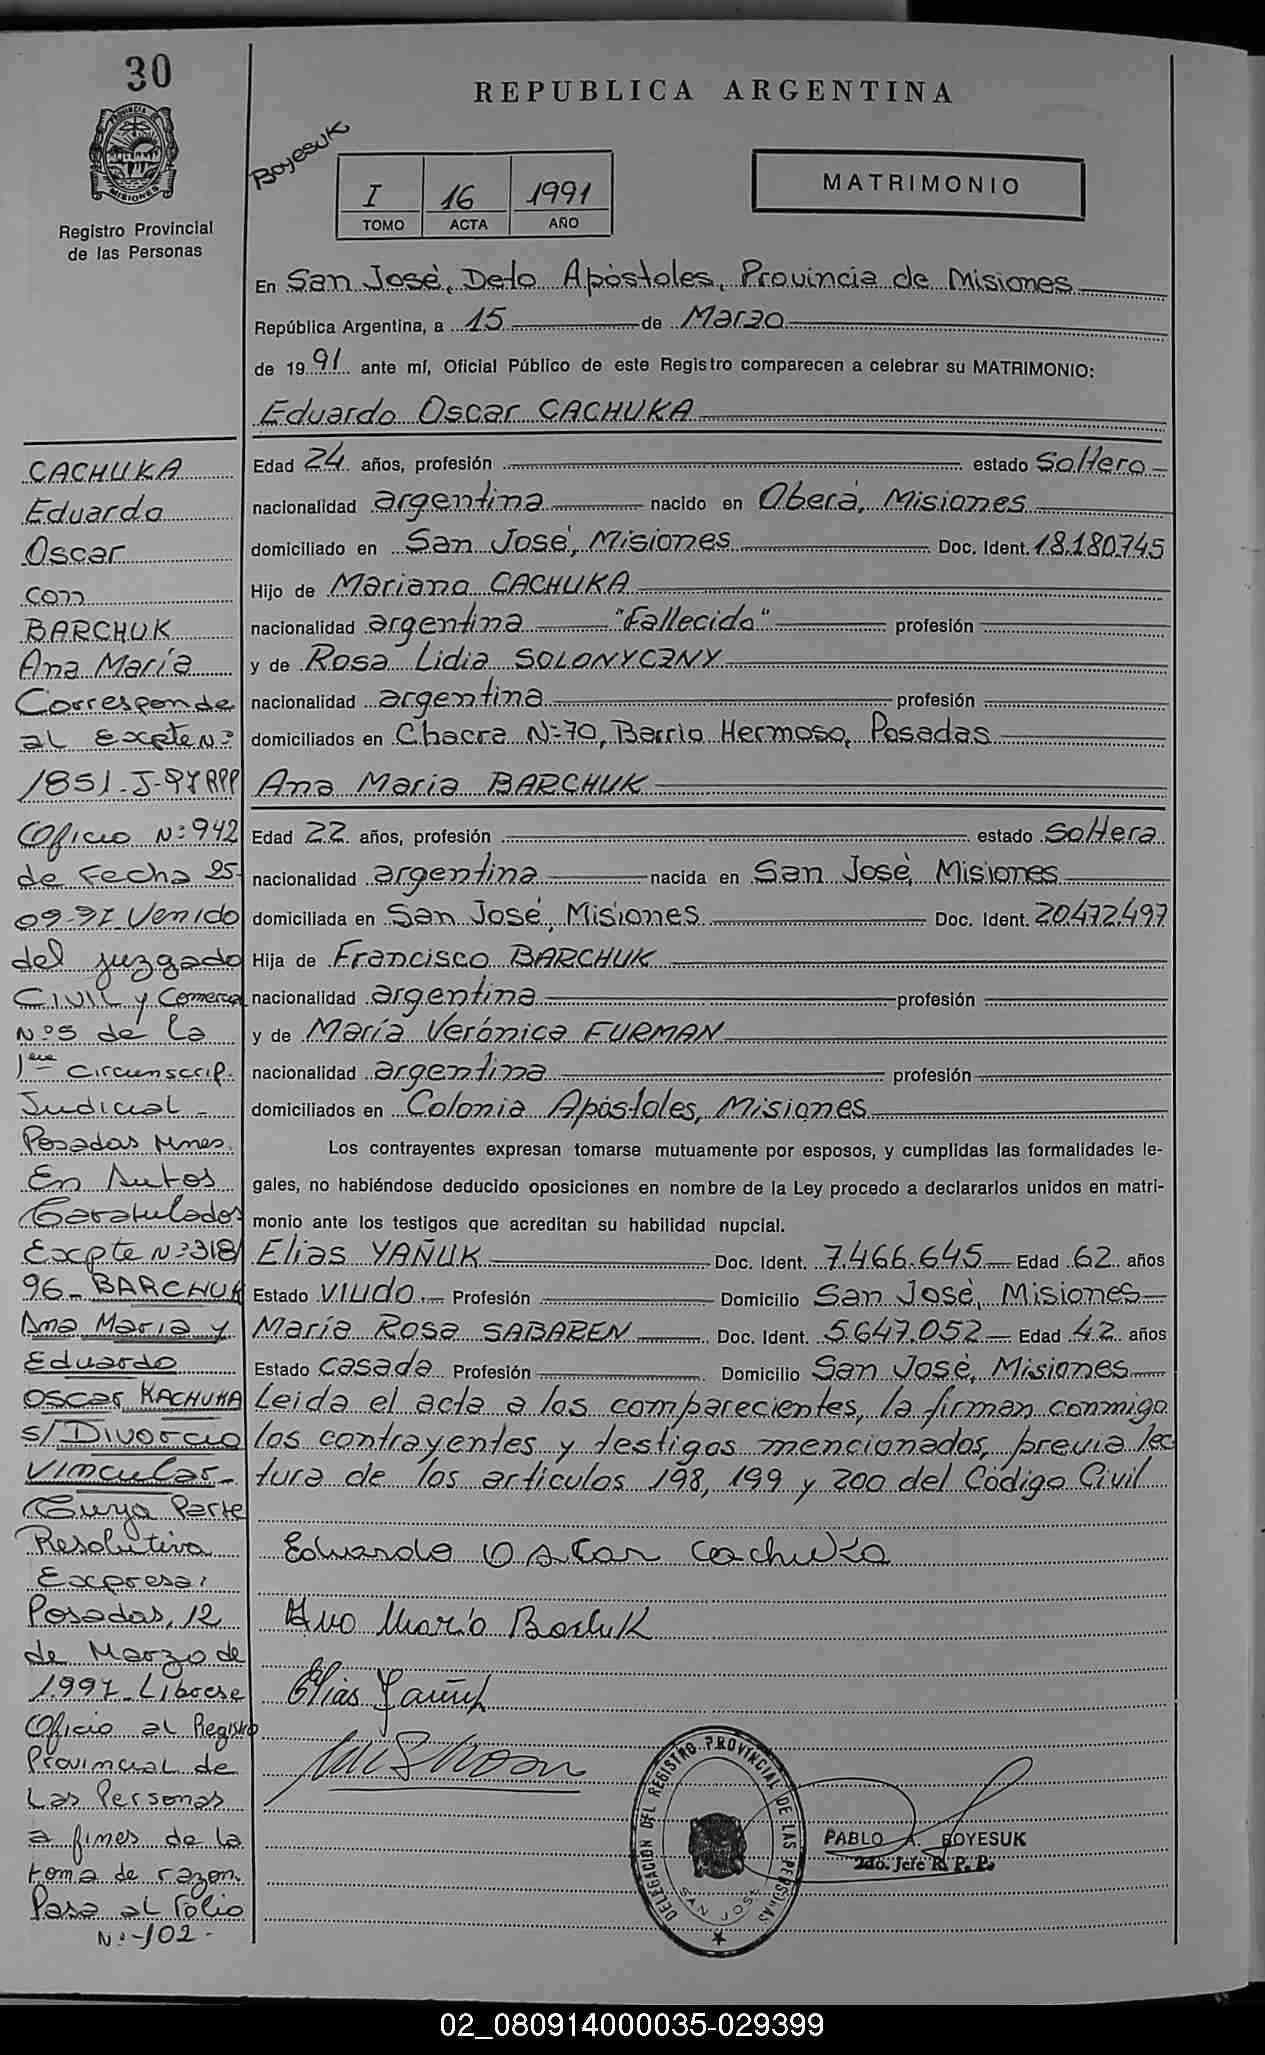 30
REPUBLICA ARGENTINA
Boyesuk
PROVINCIA
MISIONES
Registro Provincial
de las Personas
I 16 1991
TOMO ACTA AÑO
MATRIMONIO
En San José, Dpto Apóstoles, Provincia de Misiones
República Argentina, a 15 de Marzo
de 1991 ante mí, Oficial Público de este Registro comparecen a celebrar su MATRIMONIO:
Eduardo Oscar CACHUKA
Edad 24 años, profesión estado Soltero
nacionalidad argentina nacido en Oberá, Misiones
domiciliado en San José, Misiones Doc. Ident. 18.180.745
Hijo de Mariano CACHUKA
nacionalidad argentina "Fallecido" profesión
y de Rosa Lidia SOLONYCZNY
nacionalidad argentina profesión
domiciliados en Chacra Nº 70, Barrio Hermoso, Posadas
Ana Maria BARCHUK
Edad 22 años, profesión estado Soltera
nacionalidad argentina nacida en San José, Misiones
domiciliada en San José, Misiones Doc. Ident. 20.472.497
Hija de Francisco BARCHUK
nacionalidad argentina profesión
y de María Verónica FURMAN
nacionalidad argentina profesión
domiciliados en Colonia Apóstoles, Misiones
Los contrayentes expresan tomarse mutuamente por esposos, y cumplidas las formalidades le-
gales, no habiéndose deducido oposiciones en nombre de la Ley procedo a declararlos unidos en matri-
monio ante los testigos que acreditan su habilidad nupcial.
Elias YAÑUK Doc. Ident. 7.466.645 Edad 62 años
Estado viudo Profesión Domicilio San José, Misiones
María Rosa SABAREN Doc. Ident. 5.647.052 Edad 42 años
Estado casada Profesión Domicilio San José, Misiones
Leida el acta a los comparecientes, la firman conmigo
los contrayentes y testigos mencionados, previa lec
tura de los articulos 198, 199 y 200 del Código Civil
Eduardo Oscar Cachuka
Ana María Barchuk
Elias Yañuk
DELEGACIÓN DEL REGISTRO PROVINCIAL DE LAS PERSONAS
SAN JOSE
PABLO A. BOYESUK
2do. Jefe R. P. P.
CACHUKA
Eduardo
Oscar
con
BARCHUK
Ana María
Corresponde
al Expte Nº
1851-J-97 RPP
Oficio Nº 942
de Fecha 25-
09-97 Venido
del juzgado
Civil y Comercial
Nº 5 de la
1era Circunscrip.
Judicial -
Posadas Mnes.
En Autos
Caratulados
Expte Nº 318/
96 - BARCHUK
Ana Maria y
Eduardo
Oscar KACHUKA
s/ Divorcio
Vincular -
Cuya Parte
Resolutiva
Expresa:
Posadas, 12
de Marzo de
1.997 - Librese
Oficio al Registro
Provincial de
Las Personas
a fines de la
toma de razon.
Pasa al Folio
Nº 102 -
02_080914000035-029399